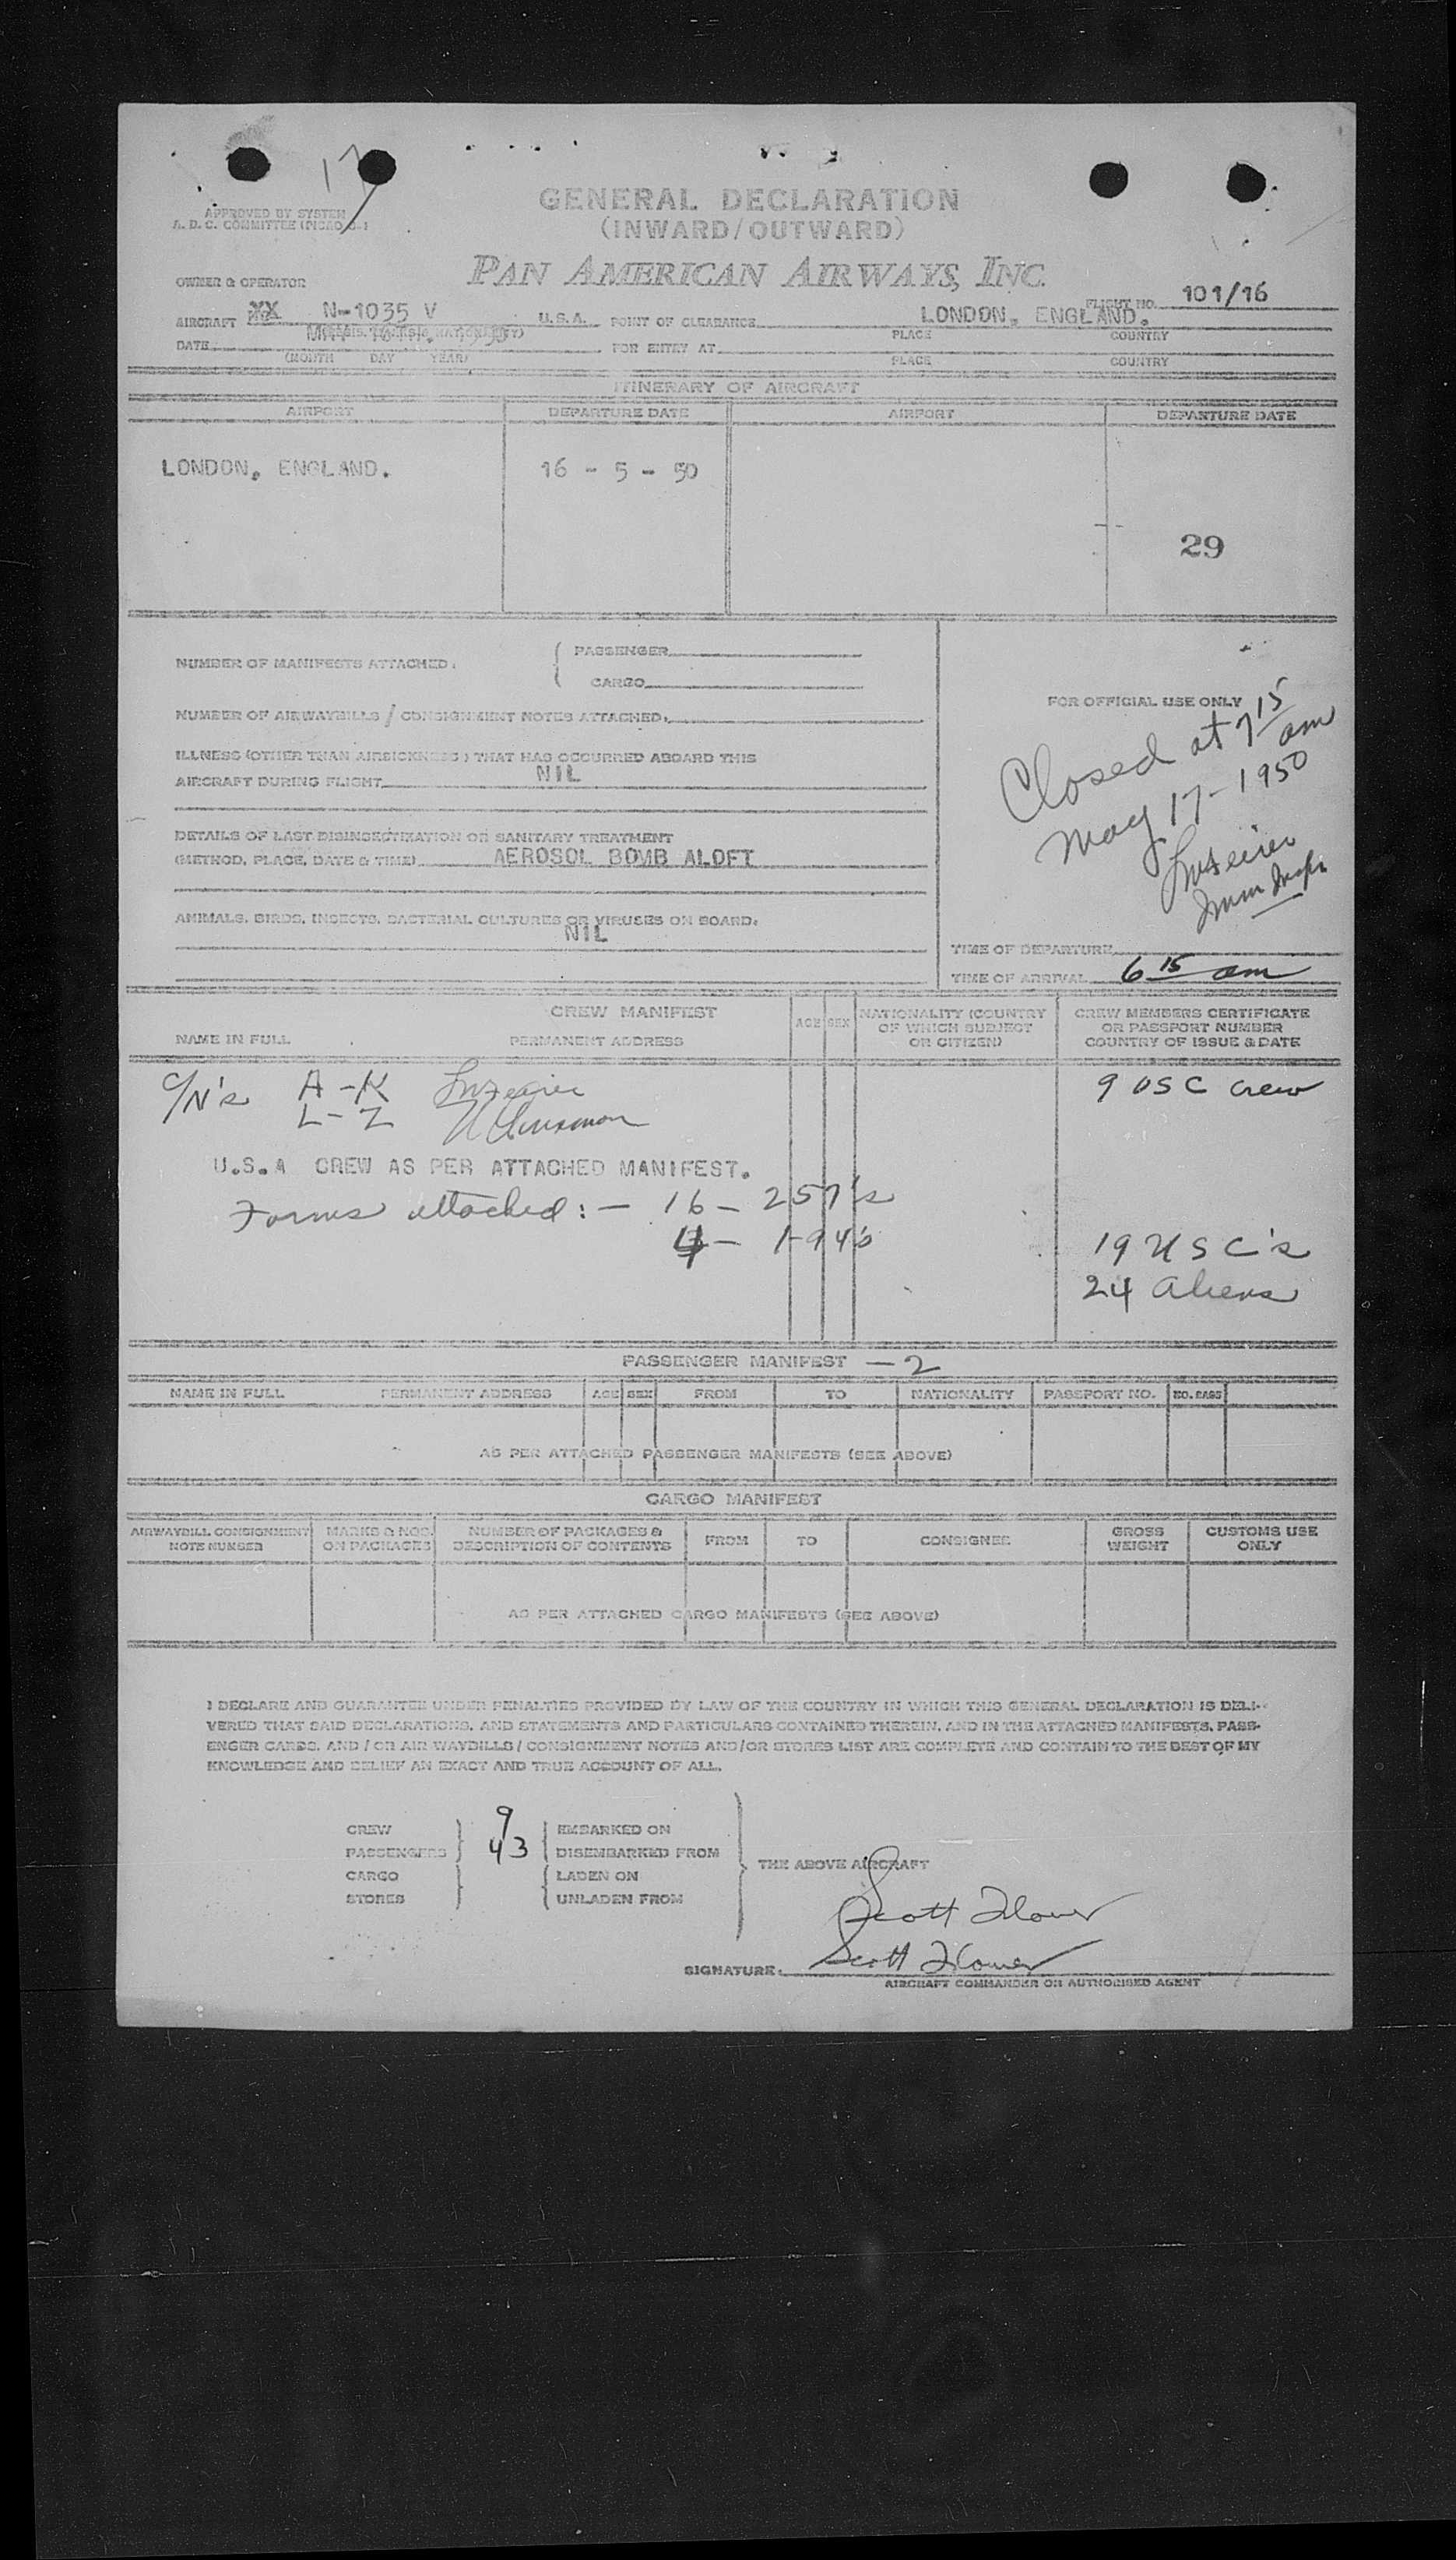 17
APPROVED BY SYSTEM
A. D. C. COMMITTEE
GENERAL DECLARATION
(INWARD/OUTWARD)
OWNER & OPERATOR
PAN AMERICAN AIRWAYS, INC.
FLIGHT NO. 101/16
AIRCRAFT XX N-1035 V U.S.A. POINT OF CLEARANCE LONDON, ENGLAND.
PLACE COUNTRY
DATE MAY 16TH. 1950 FOR ENTRY AT
(MONTH DAY YEAR) PLACE COUNTRY
ITINERARY OF AIRCRAFT
AIRPORT DEPARTURE DATE AIRPORT DEPARTURE DATE
LONDON, ENGLAND. 16 - 5 - 50
29
NUMBER OF MANIFESTS ATTACHED: { PASSENGER
CARGO
FOR OFFICIAL USE ONLY
NUMBER OF AIRWAYBILLS / CONSIGNMENT NOTES ATTACHED:
ILLNESS (OTHER THAN AIRSICKNESS) THAT HAS OCCURRED ABOARD THIS
AIRCRAFT DURING FLIGHT NIL
Closed at 7 15 am
May 17-1950
DETAILS OF LAST DISINSECTIZATION OR SANITARY TREATMENT
(METHOD, PLACE, DATE & TIME) AEROSOL BOMB ALOFT
Imm Insp.
ANIMALS, BIRDS, INSECTS, BACTERIAL CULTURES OR VIRUSES ON BOARD.
NIL
TIME OF DEPARTURE
TIME OF ARRIVAL 6 15 am
CREW MANIFEST
NAME IN FULL PERMANENT ADDRESS AGE SEX NATIONALITY (COUNTRY OF WHICH SUBJECT OR CITIZEN) CREW MEMBERS CERTIFICATE OR PASSPORT NUMBER COUNTRY OF ISSUE & DATE
C/N's A-K 9 USC Crew
L-Z
U.S.A CREW AS PER ATTACHED MANIFEST.
Forms attached: - 16 - 257's
4 - 1-94's 19 USC's
24 Aliens
PASSENGER MANIFEST - 2
NAME IN FULL PERMANENT ADDRESS AGE SEX FROM TO NATIONALITY PASSPORT NO. NO. BAGS
AS PER ATTACHED PASSENGER MANIFESTS (SEE ABOVE)
CARGO MANIFEST
AIRWAYBILL CONSIGNMENT NOTE NUMBER MARKS & NOS. ON PACKAGES NUMBER OF PACKAGES & DESCRIPTION OF CONTENTS FROM TO CONSIGNEE GROSS WEIGHT CUSTOMS USE ONLY
AS PER ATTACHED CARGO MANIFESTS (SEE ABOVE)
I DECLARE AND GUARANTEE UNDER PENALTIES PROVIDED BY LAW OF THE COUNTRY IN WHICH THIS GENERAL DECLARATION IS DELI-
VERED THAT SAID DECLARATIONS, AND STATEMENTS AND PARTICULARS CONTAINED THEREIN, AND IN THE ATTACHED MANIFESTS, PASS-
ENGER CARDS, AND / OR AIR WAYBILLS / CONSIGNMENT NOTES AND/OR STORES LIST ARE COMPLETE AND CONTAIN TO THE BEST OF MY
KNOWLEDGE AND BELIEF AN EXACT AND TRUE ACCOUNT OF ALL.
CREW 9 EMBARKED ON
PASSENGERS 43 DISEMBARKED FROM
THE ABOVE AIRCRAFT
CARGO LADEN ON
STORES UNLADEN FROM
Scott Flower
SIGNATURE: Scott Flower
AIRCRAFT COMMANDER OR AUTHORISED AGENT